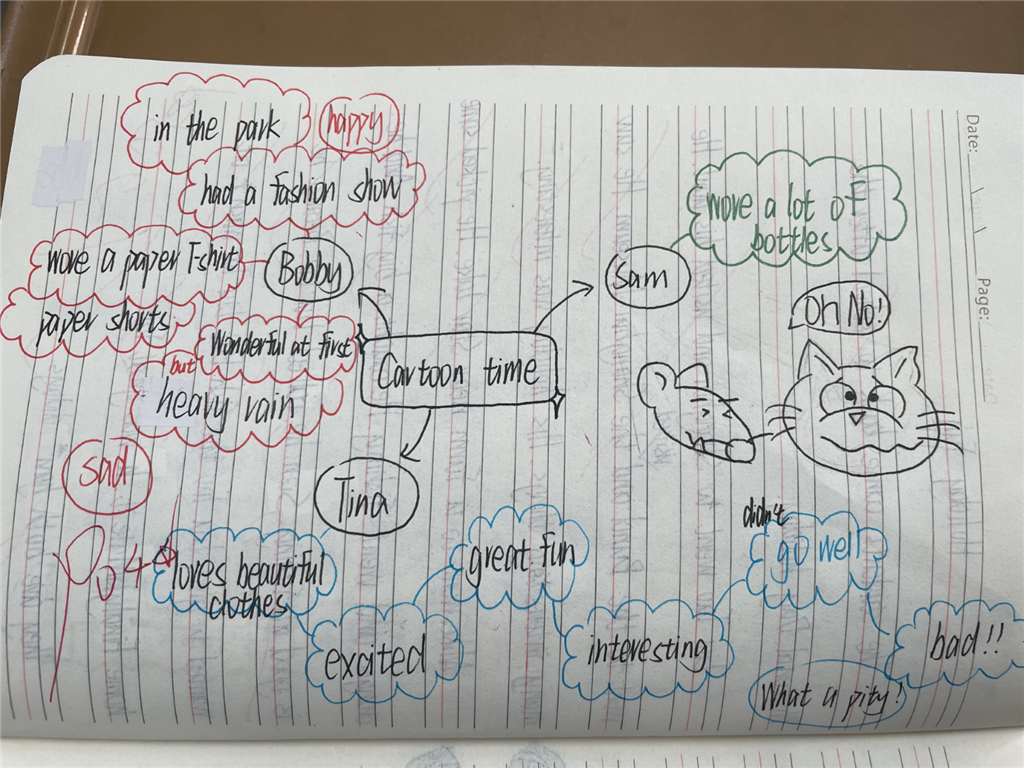 in the park
happy
had a fashion show
wore a paper T-shirt
paper shorts
Bobby
Wonderful at first
but
heavy rain
sad
Cartoon time
Sam
wore a lot of
bottles
Oh No!
Tina
loves beautiful
clothes
excited
great fun
interesting
didn't
go well
bad!!
What a pity!
Date:
Page: